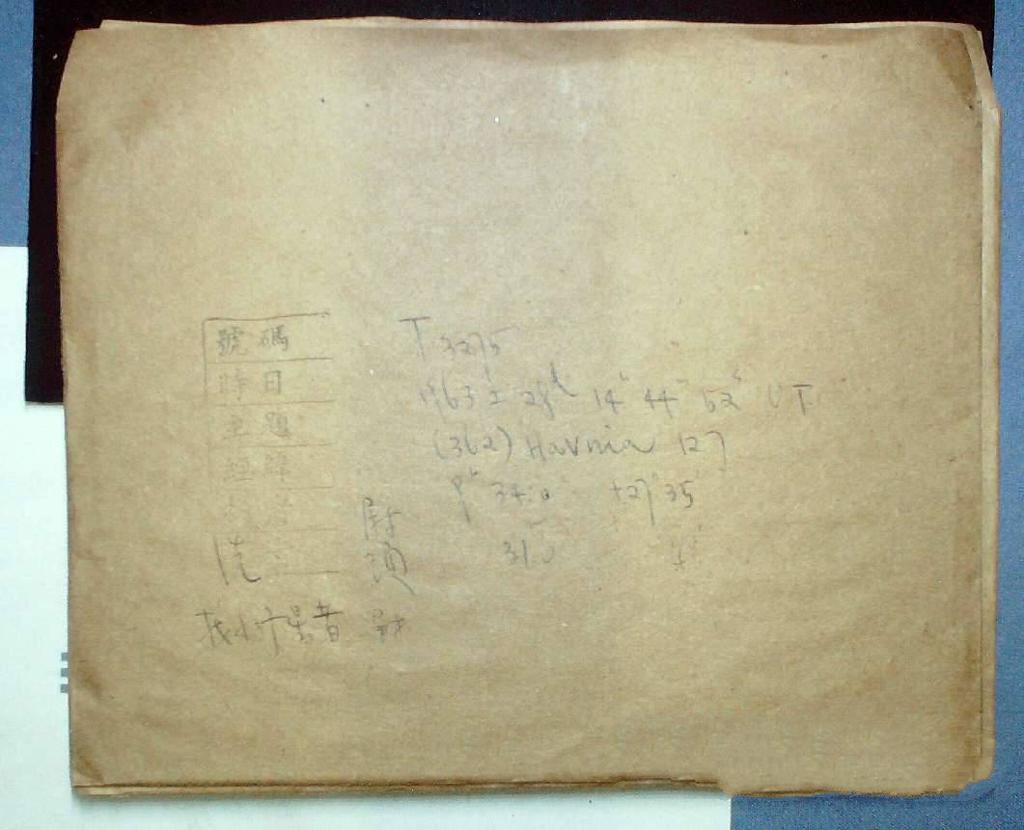 號碼 T 3275
時日 1963 I 28d 14h 44m 52s UT
主題 (362) Havnia 127
經緯 9h 34.0 +27°35'
31.0
洗
找小行星者